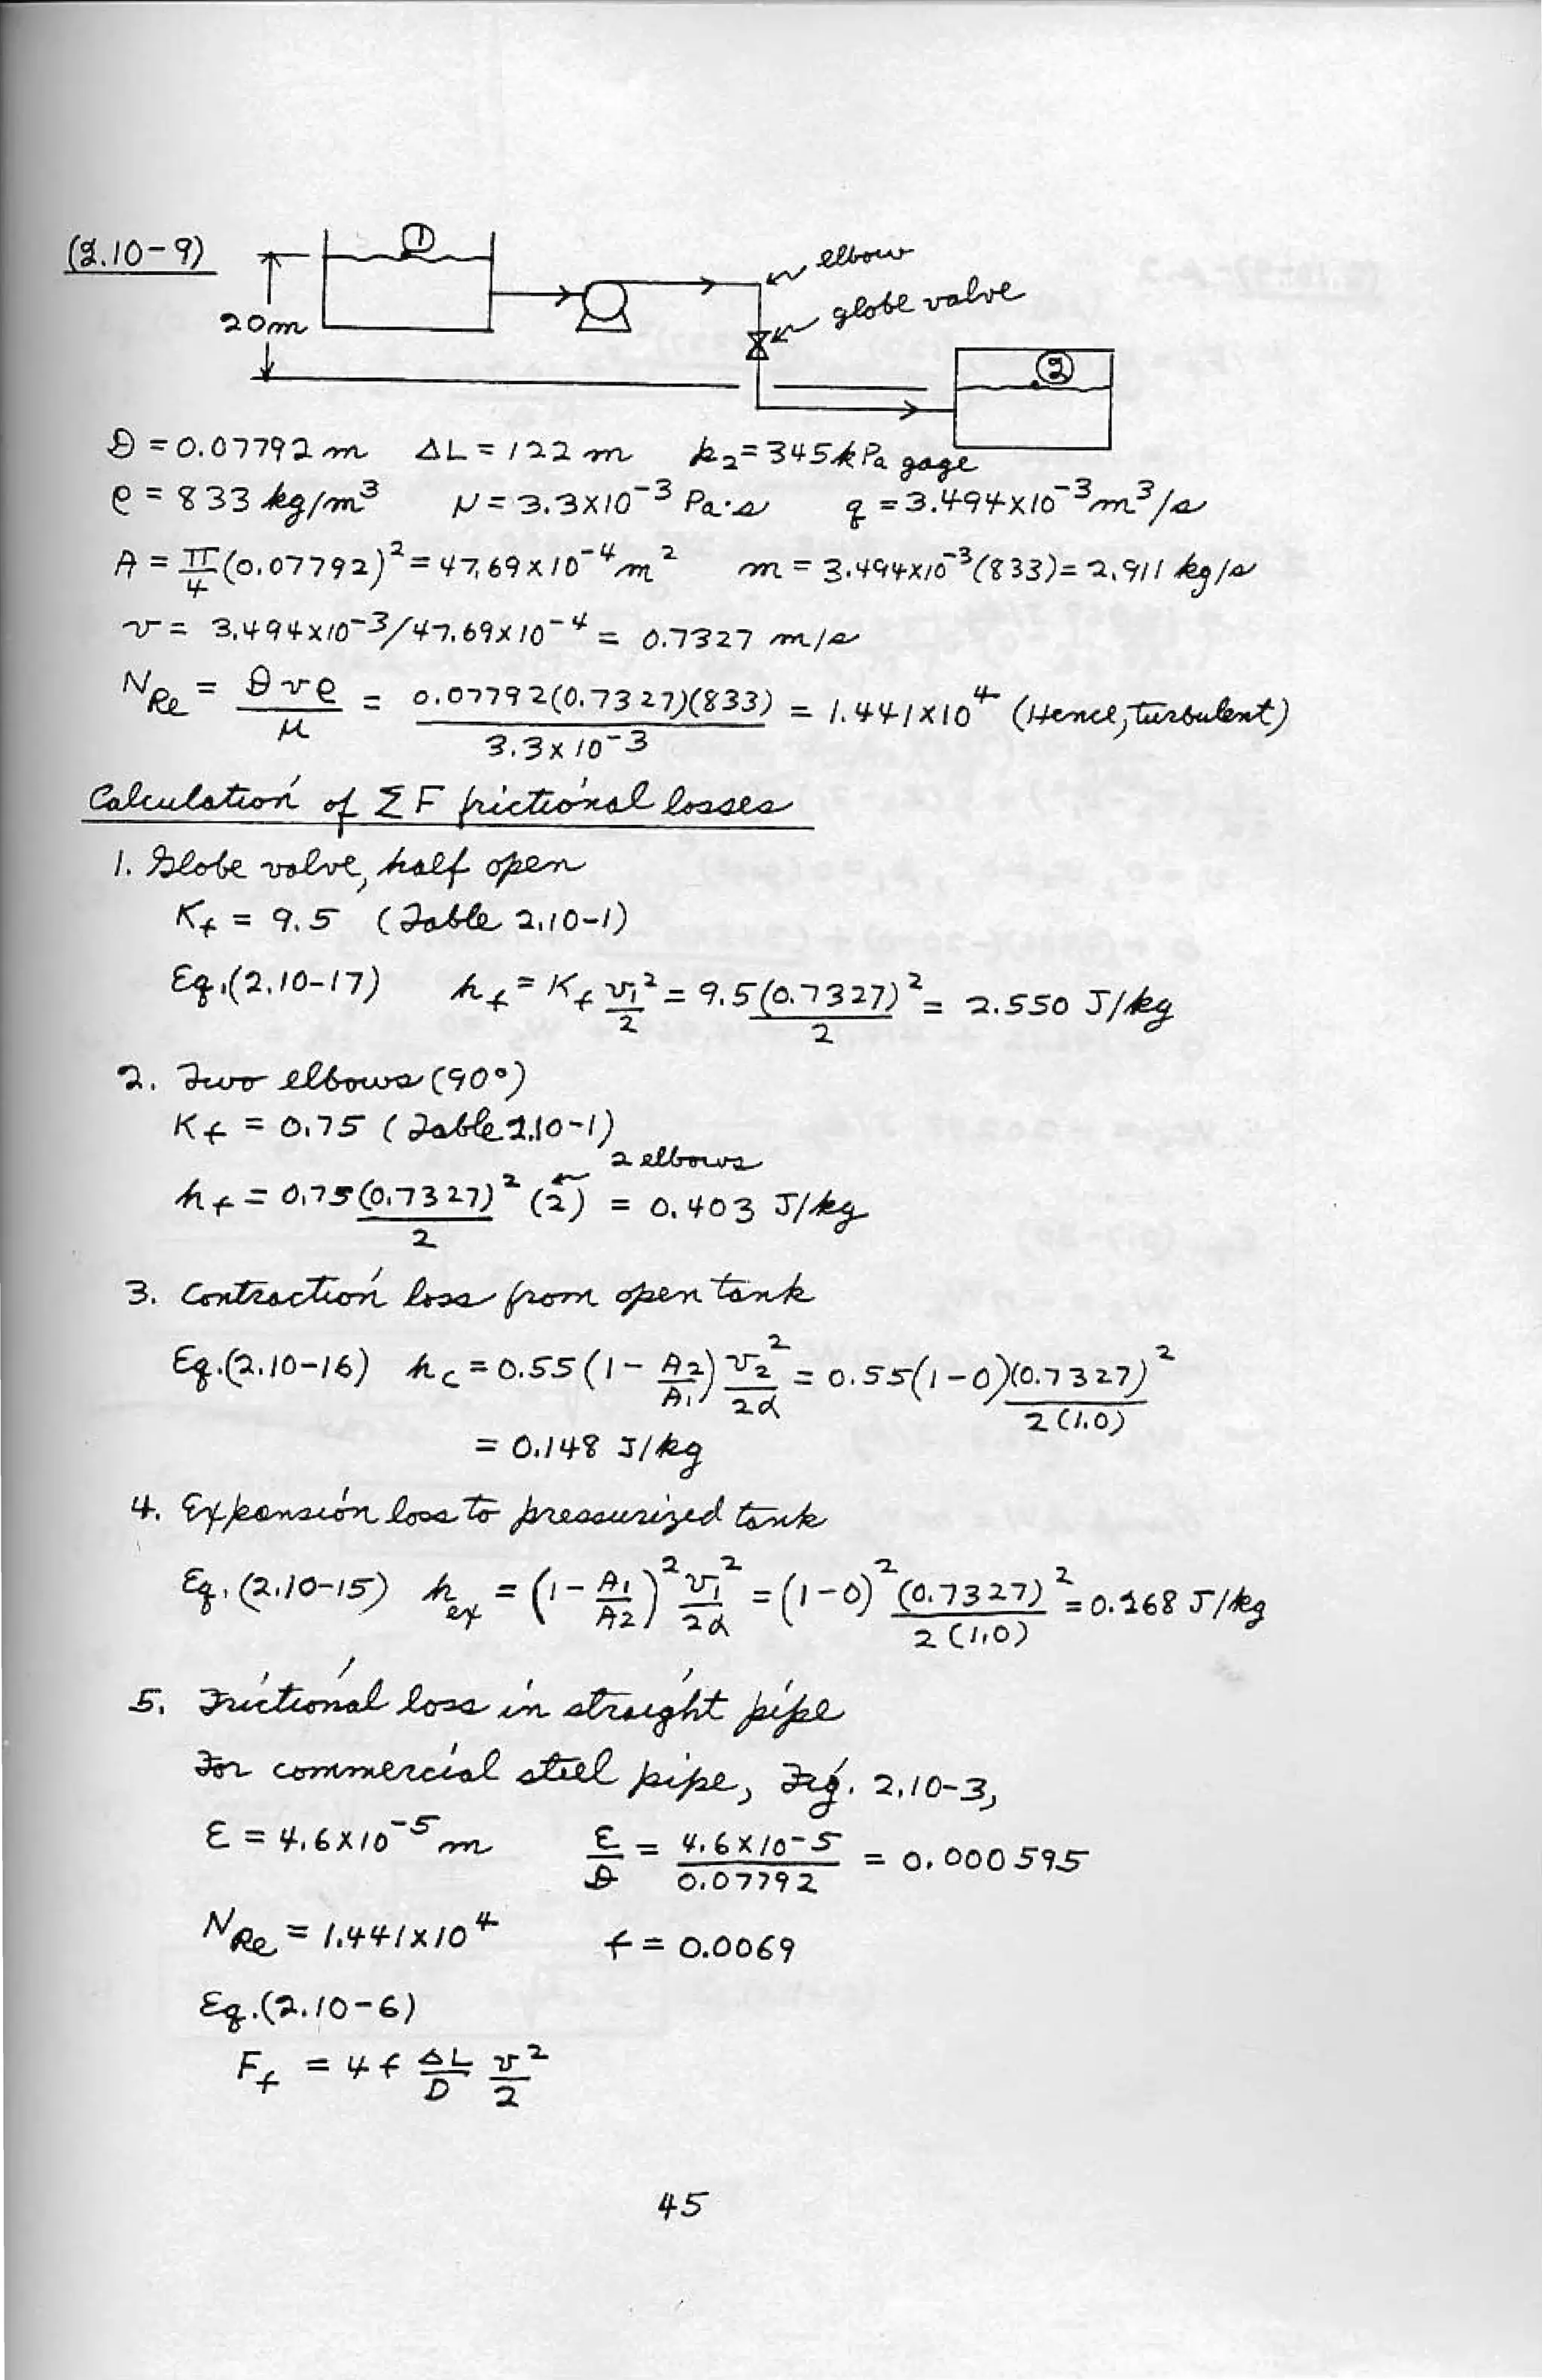 (2.10-9)
①
elbow
globe valve
20m
②
D = 0.07792 m ΔL = 122 m p₂ = 345 kPa gage
ρ = 833 kg/m³ μ = 3.3×10⁻³ Pa·s q = 3.494×10⁻³ m³/s
A = π/4 (0.07792)² = 47.69×10⁻⁴ m² m = 3.494×10⁻³(833) = 2.911 kg/s
v = 3.494×10⁻³/47.69×10⁻⁴ = 0.7327 m/s
N_Re = Dvρ/μ = 0.07792(0.7327)(833)/3.3×10⁻³ = 1.441×10⁴ (Hence, turbulent)
Calculation of ΣF frictional losses
1. Globe valve, half open
K_f = 9.5 (Table 2.10-1)
Eq.(2.10-17) h_f = K_f v₁²/2 = 9.5(0.7327)²/2 = 2.550 J/kg
2. Two elbows (90°)
K_f = 0.75 (Table 2.10-1)
2 elbows
h_f = 0.75(0.7327)²/2 (2) = 0.403 J/kg
3. Contraction loss from open tank
Eq.(2.10-16) h_c = 0.55(1 - A₂/A₁) v₂²/2α = 0.55(1-0)(0.7327)²/2(1.0)
= 0.148 J/kg
4. Expansion loss to pressurized tank
Eq. (2.10-15) h_ex = (1 - A₁/A₂)² v₁²/2α = (1-0)² (0.7327)²/2(1.0) = 0.268 J/kg
5. Frictional loss in straight pipe
For commercial steel pipe, Fig. 2.10-3,
ε = 4.6×10⁻⁵ m ε/D = 4.6×10⁻⁵/0.07792 = 0.000595
N_Re = 1.441×10⁴ f = 0.0069
Eq.(2.10-6)
F_f = 4f ΔL/D v²/2
45